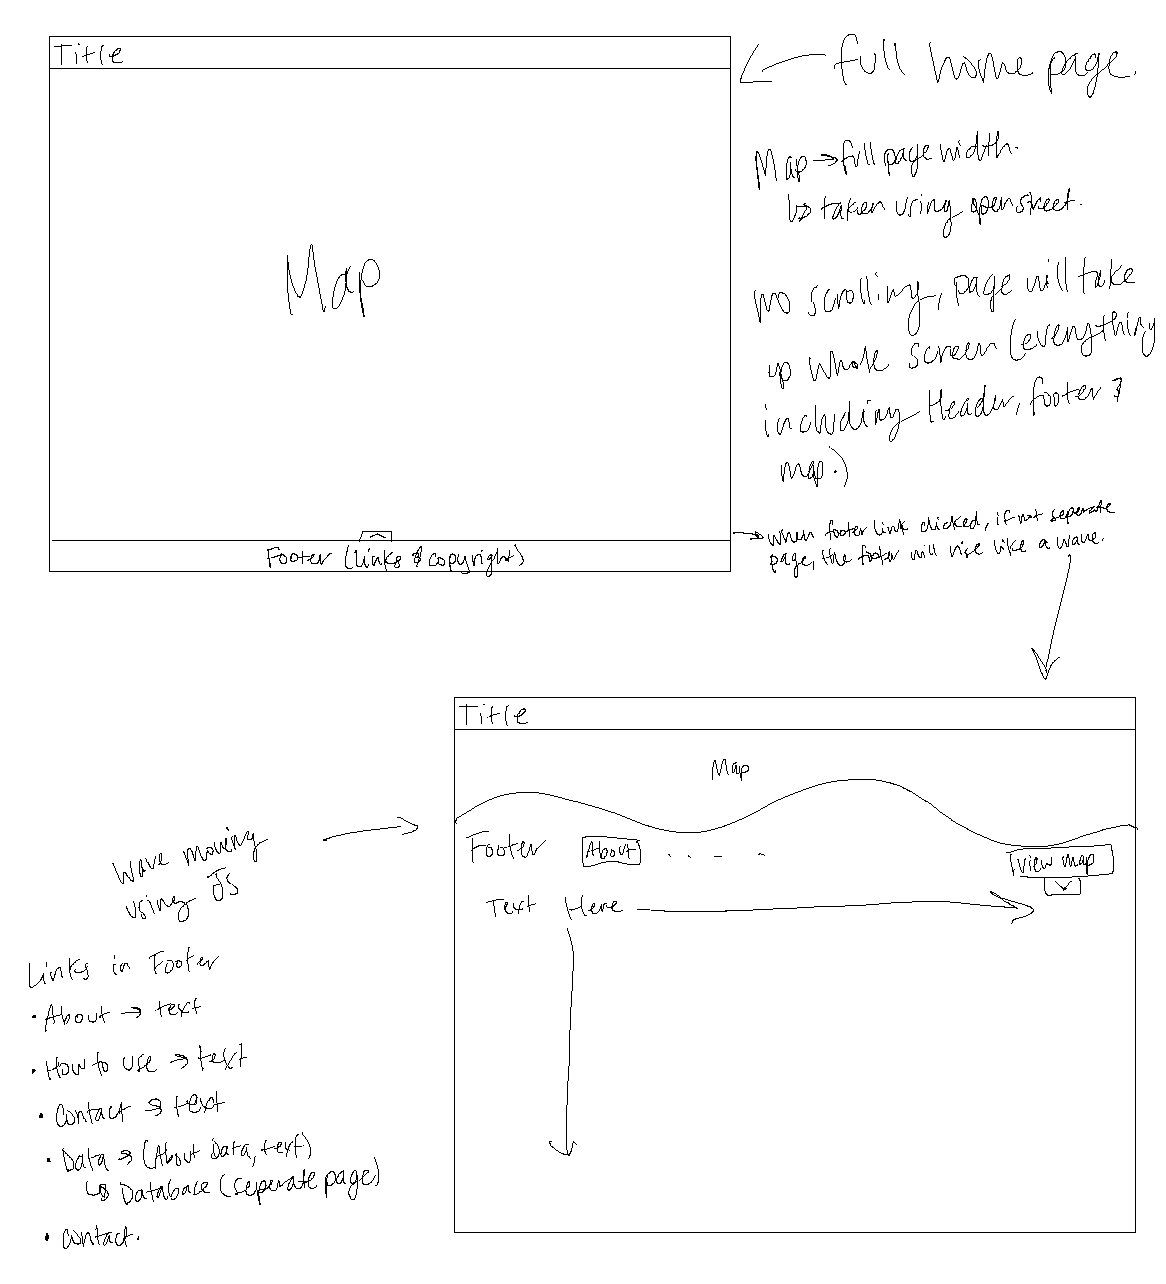 Title
Map
Footer (Links & copyright)
full home page.
Map → full page width.
↳ taken using openstreet.
no scrolling, page will take
up whole screen (everything
including Header, footer &
map.)
→ when footer link clicked, if not seperate
page, the footer will rise like a wave.
Title
Map
Footer
About
view map
Text Here
Wave moving
using JS
Links in Footer
• About → text
• How to use → text
• Contact → text
• Data → (About Data, text)
↳ Database (seperate page)
• contact.